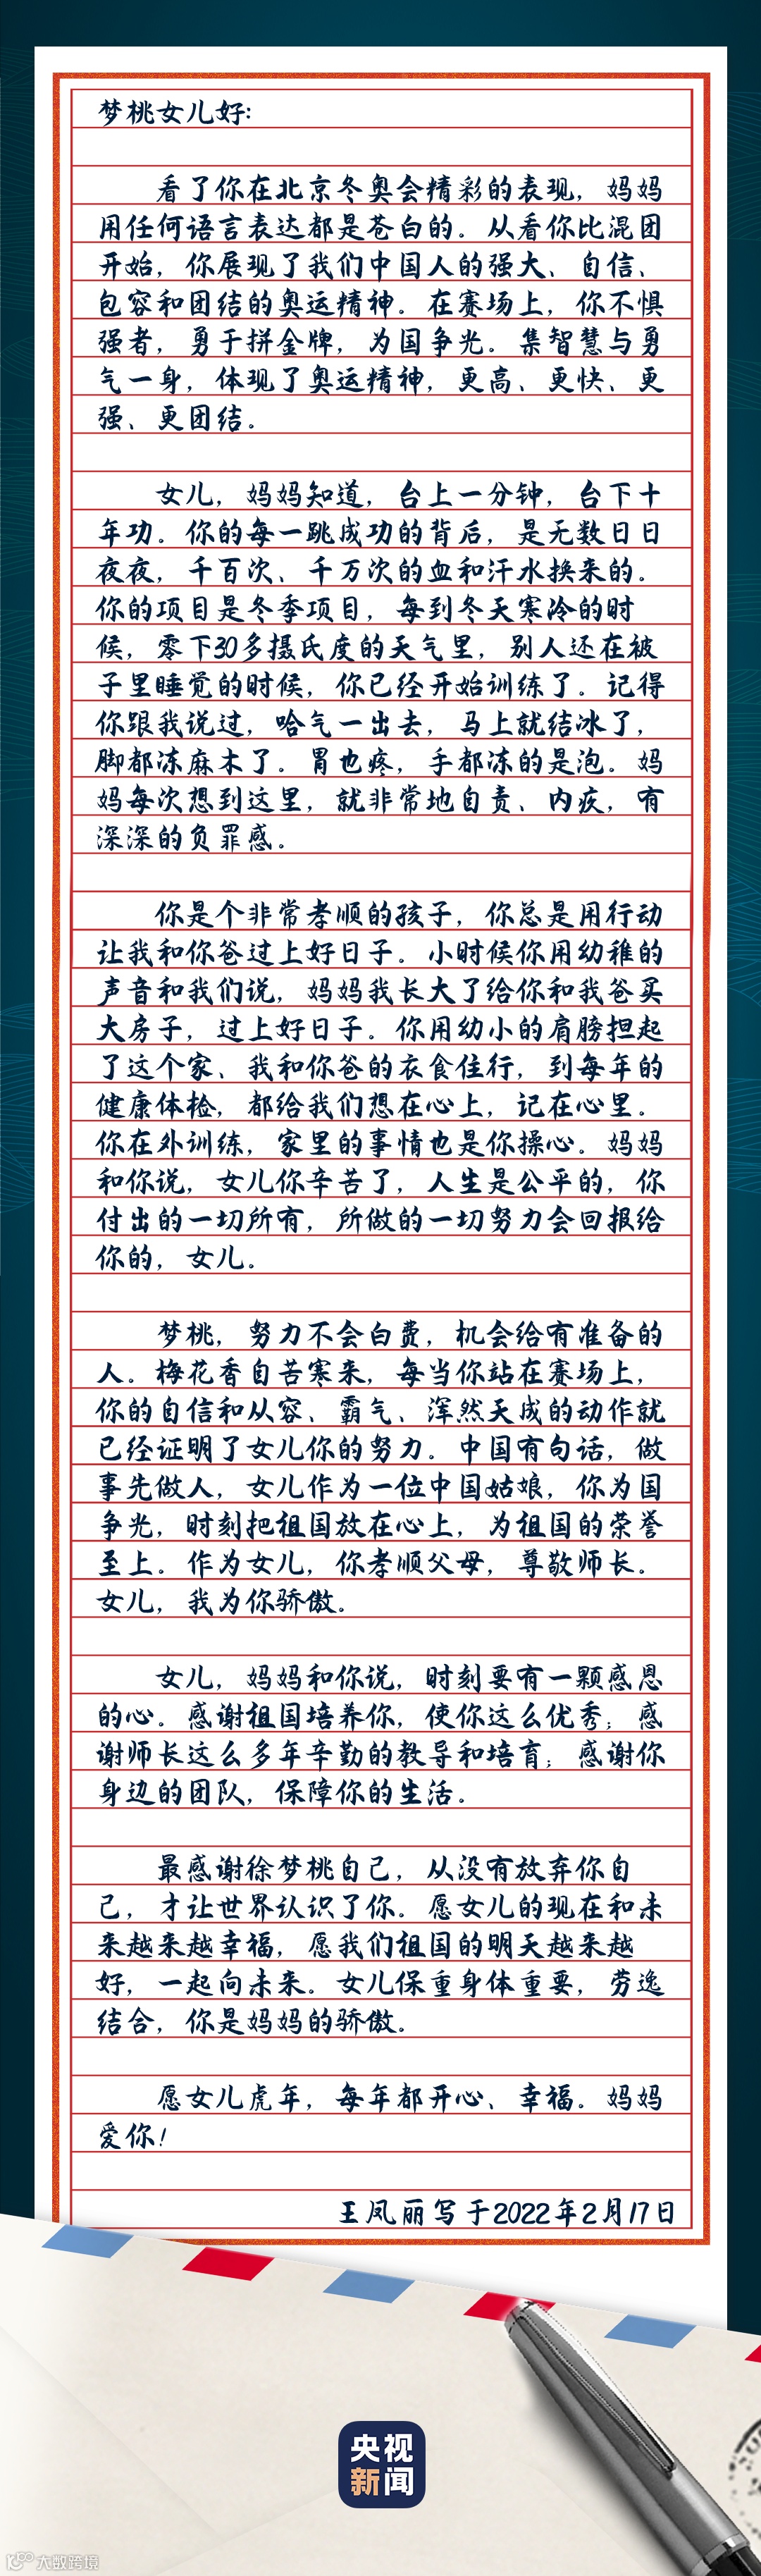 梦桃女儿好:
看了你在北京冬奥会精彩的表现，妈妈
用任何语言表达都是苍白的。从看你比混团
开始，你展现了我们中国人的强大、自信、
包容和团结的奥运精神。在赛场上，你不惧
强者，勇于拼金牌，为国争光。集智慧与勇
气一身，体现了奥运精神，更高、更快、更
强、更团结。
女儿，妈妈知道，台上一分钟，台下十
年功。你的每一跳成功的背后，是无数日日
夜夜，千百次、千万次的血和汗水换来的。
你的项目是冬季项目，每到冬天寒冷的时
候，零下30多摄氏度的天气里，别人还在被
子里睡觉的时候，你已经开始训练了。记得
你跟我说过，哈气一出去，马上就结冰了，
脚都冻麻木了。胃也疼，手都冻的是泡。妈
妈每次想到这里，就非常地自责、内疚，有
深深的负罪感。
你是个非常孝顺的孩子，你总是用行动
让我和你爸过上好日子。小时候你用幼稚的
声音和我们说，妈妈我长大了给你和我爸买
大房子，过上好日子。你用幼小的肩膀担起
了这个家、我和你爸的衣食住行，到每年的
健康体检，都给我们想在心上，记在心里。
你在外训练，家里的事情也是你操心。妈妈
和你说，女儿你辛苦了，人生是公平的，你
付出的一切所有，所做的一切努力会回报给
你的，女儿。
梦桃，努力不会白费，机会给有准备的
人。梅花香自苦寒来，每当你站在赛场上，
你的自信和从容、霸气、浑然天成的动作就
已经证明了女儿你的努力。中国有句话，做
事先做人，女儿作为一位中国姑娘，你为国
争光，时刻把祖国放在心上，为祖国的荣誉
至上。作为女儿，你孝顺父母，尊敬师长。
女儿，我为你骄傲。
女儿，妈妈和你说，时刻要有一颗感恩
的心。感谢祖国培养你，使你这么优秀；感
谢师长这么多年辛勤的教导和培育；感谢你
身边的团队，保障你的生活。
最感谢徐梦桃自己，从没有放弃你自
己，才让世界认识了你。愿女儿的现在和未
来越来越幸福，愿我们祖国的明天越来越
好，一起向未来。女儿保重身体重要，劳逸
结合，你是妈妈的骄傲。
愿女儿虎年，每年都开心、幸福。妈妈
爱你！
王凤丽写于2022年2月17日
央视
新闻
大数跨境